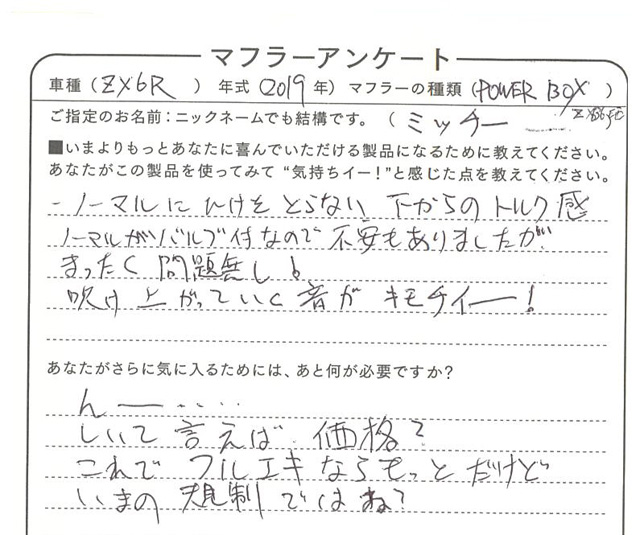 マフラーアンケート
車種（ZX6R）年式（2019年）マフラーの種類（POWER BOX）
ご指定のお名前：ニックネームでも結構です。（ミッチー
■いまよりもっとあなたに喜んでいただける製品になるために教えてください。
あなたがこの製品を使ってみて“気持ちイー！”と感じた点を教えてください。
-ノーマルにひけをとらない下からのトルク感
ノーマルがバルブ付なので不安もありましたが
まったく問題無し！
吹け上がっていく音がキモチイー！
あなたがさらに気に入るためには、あと何が必要ですか？
んー・・・・
しいて言えば価格？
これでフルエキならもっとだけど
いまの規制ではね？